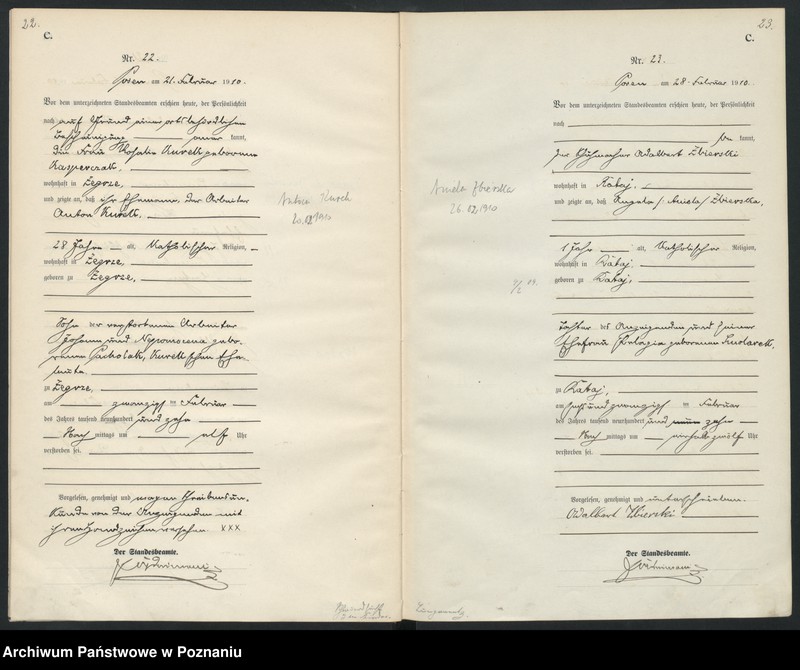 22.
C.
Nr. 22.
Posen am 21. Februar 1910.
Vor dem unterzeichneten Standesbeamten erschien heute, der Persönlichkeit
nach auf Grund einer ortsbehördlichen
Bescheinigung kannt,
die Frau Rosalie Kurek geborene
Kasperczak,
wohnhaft in Żegrze,
und zeigte an, daß ihr Ehemann, der Arbeiter
Anton Kurek,
28 Jahre alt, Katholischer Religion,
wohnhaft in Żegrze,
geboren zu Żegrze,
Sohn der verstorbenen Arbeiter
Johann und Nepomucena gebo-
rene Kurek'schen Ehe-
leute
zu Żegrze,
am zwanzigsten Februar
des Jahres tausend neunhundert und zehn
Nach mittags um elf Uhr
verstorben sei.
Vorgelesen, genehmigt und wegen Schreibensun-
kunde von der Anzeigenden mit
ihren Handzeichen versehen XXX
Der Standesbeamte.
20.02.1910
23.
C.
Nr. 23.
Posen am 28. Februar 1910.
Vor dem unterzeichneten Standesbeamten erschien heute, der Persönlichkeit
nach
be kannt,
der Schuhmacher Adalbert Zbierski
wohnhaft in Rataj,
und zeigte an, daß Angela / Aniela / Zbierska,
1 Jahr alt, Katholischer Religion,
wohnhaft in Rataj,
geboren zu Rataj,
Tochter des Anzeigenden und seiner
Ehefrau Pelagia geborenen
zu Rataj,
am sechsundzwanzigsten Februar
des Jahres tausend neunhundert und zehn
Nach mittags um zwölf Uhr
verstorben sei.
Vorgelesen, genehmigt und unterschrieben.
Adalbert Zbierski
Der Standesbeamte.
Aniela Zbierska
26.02.1910
Archiwum Państwowe w Poznaniu